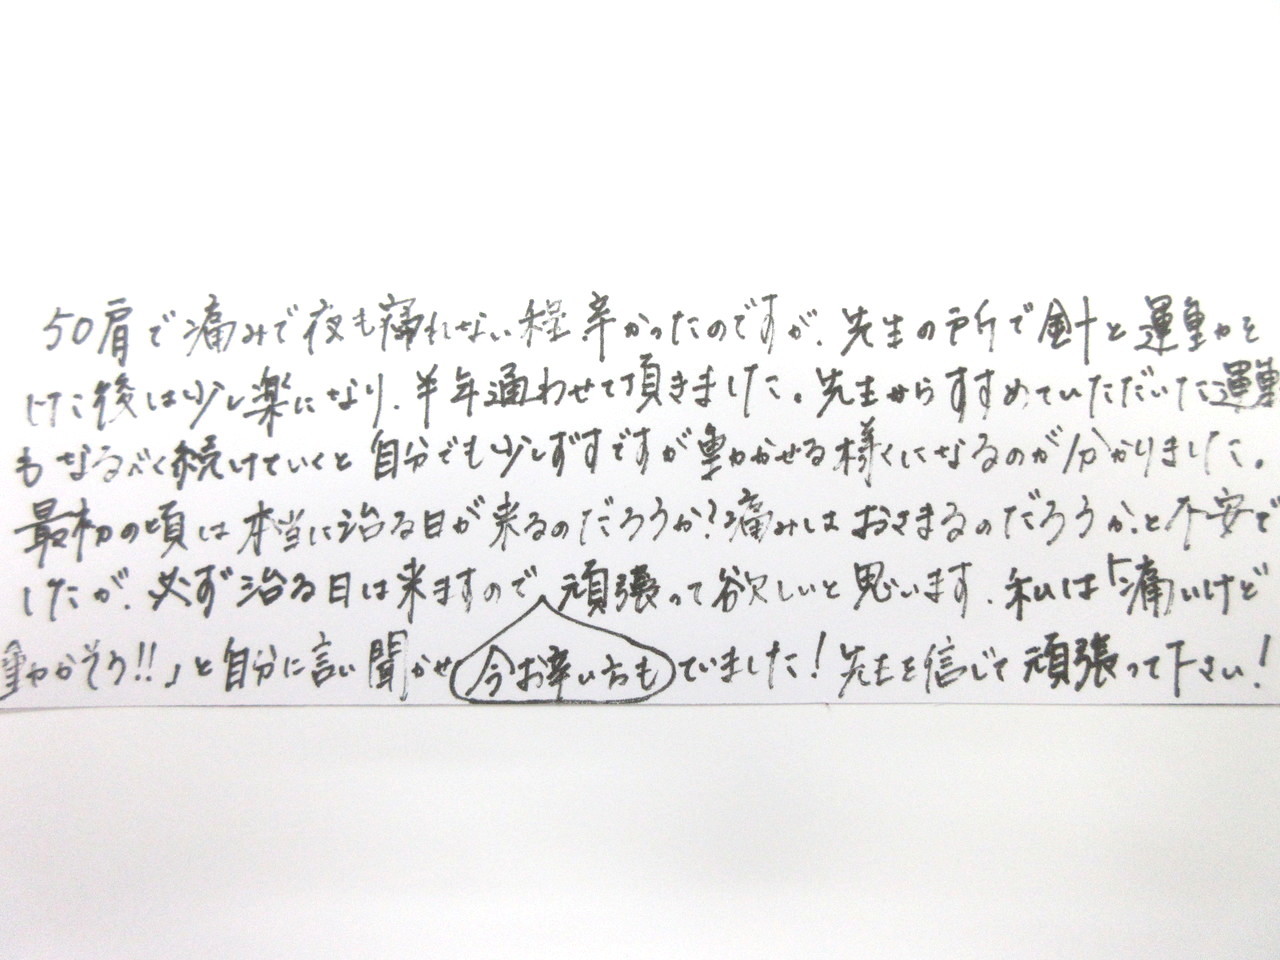 50肩で痛みで夜も寝れない程辛かったのですが、先生の所で針と運動を
した後は少し楽になり、半年通わせて頂きました。先生からすすめていただいた運動
もなるべく続けていくと自分でも少しずつですが動かせる様になるのが分かりました。
最初の頃は本当に治る日が来るのだろうか?痛みはおさまるのだろうか、と不安で
したが、必ず治る日は来ますので頑張って欲しいと思います。私は「痛いけど
動かそう!!」と自分に言い聞かせ
今お辛い方も
ていました!先生を信じて頑張って下さい!